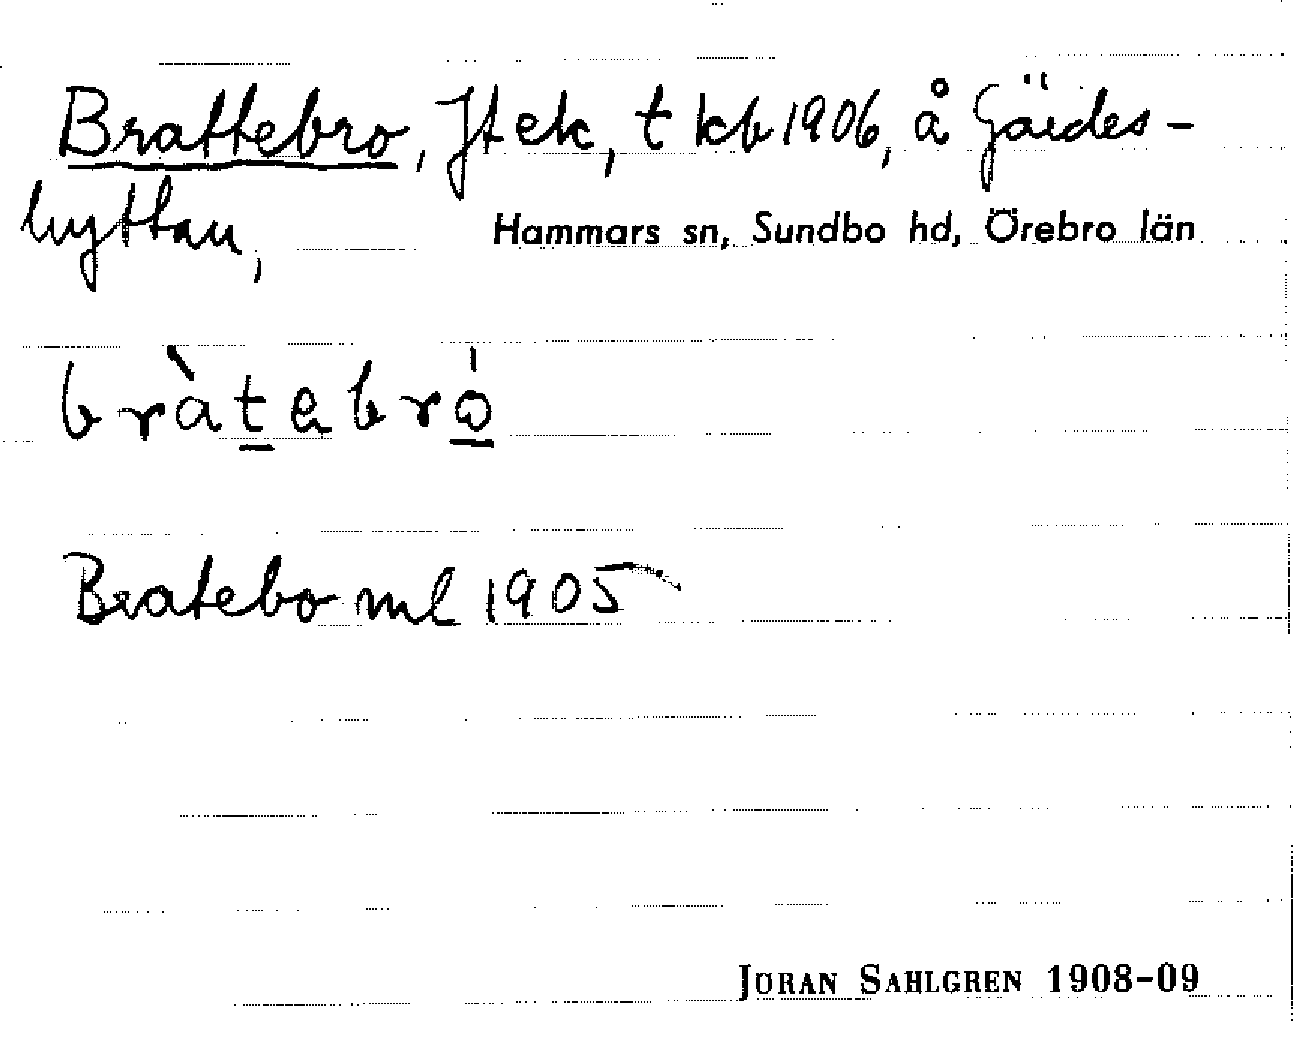 Brattebro, Jtek, t kb 1906, å Gärdes-
hyttan,
Hammars sn, Sundbo hd, Örebro län
bràtebró
Bratebo ml 1905
JÖRAN SAHLGREN 1908-09